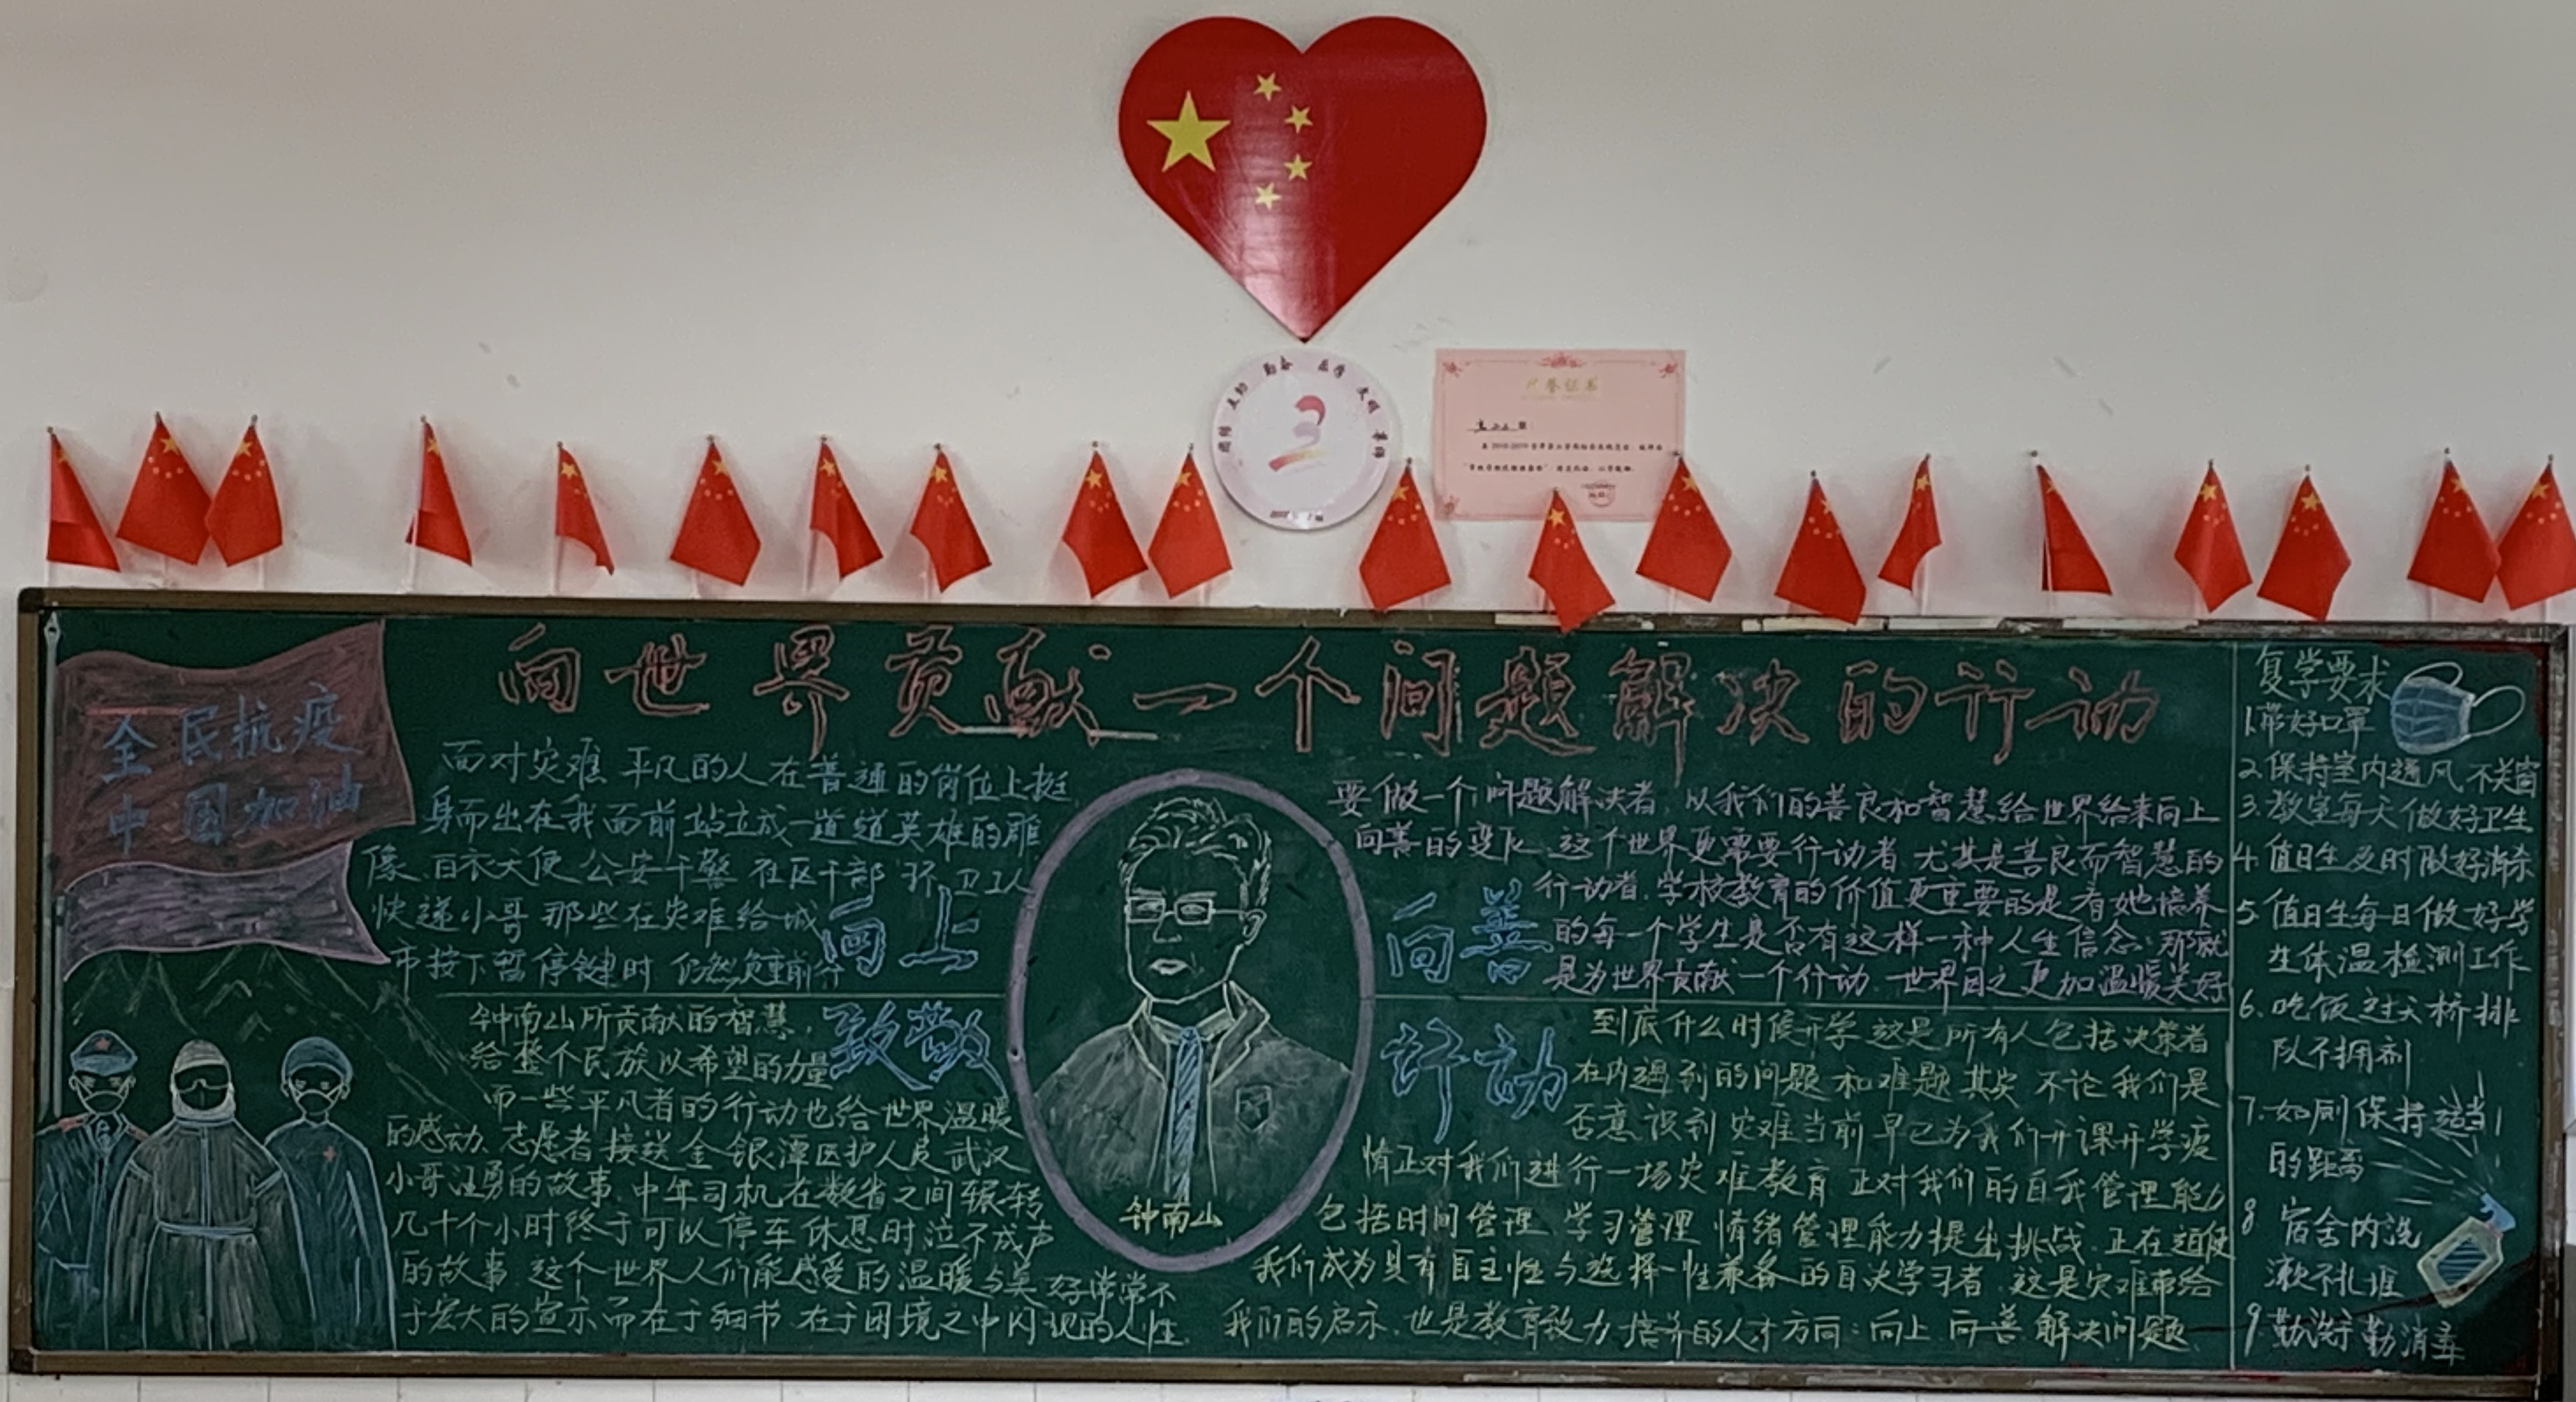 向世界贡献一个问题解决的行动
全民抗疫
中国加油
面对灾难 平凡的人在普通的岗位上挺
身而出在我面前站立成一道道英雄的雕
像 白衣天使 公安干警 社区干部 环卫工人
快递小哥 那些在灾难给城
市按下暂停键时 仍然负重前行
向上
钟南山所贡献的智慧,
给整个民族以希望的力量
致敬
而一些平凡者的行动也给世界温暖
的感动、志愿者接送金银潭医护人员武汉
小哥汪勇的故事 中年司机在数省之间辗转
几十个小时终于可以停车休息时泣不成声
的故事 这个世界人们能感受的温暖与美好常常不
于宏大的宣示而在于细节 在于困境之中闪现的人性
钟南山
要做一个问题解决者 以我们的善良和智慧给世界给来向上
向善的变化 这个世界更需要行动者 尤其是善良而智慧的
行动者.学校教育的价值更重要的是看她培养
的每一个学生是否有这样一种人生信念:那就
是为世界贡献一个行动 世界因之更加温暖美好
向善
行动
到底什么时候开学 这是所有人包括决策者
在内遇到的问题和难题 其实 不论我们是
否意识到 灾难当前早已为我们开课开学疫
情正对我们进行一场灾难教育 正对我们的自我管理能力
包括时间管理 学习管理 情绪管理能力提出挑战 正在迫使
我们成为具有自主性与选择性兼备的自决学习者 这是灾难带给
我们的启示.也是教育致力培养的人才方向:向上 向善 解决问题
复学要求
1.带好口罩
2.保持室内通风 不关窗
3.教室每天做好卫生
4.值日生及时做好消杀
5.值日生每日做好学
生体温检测工作
6.吃饭过天桥排
队不拥挤
7.如厕保持适当
的距离
8 宿舍内洗
漱不扎堆
9 勤洗手 勤消毒